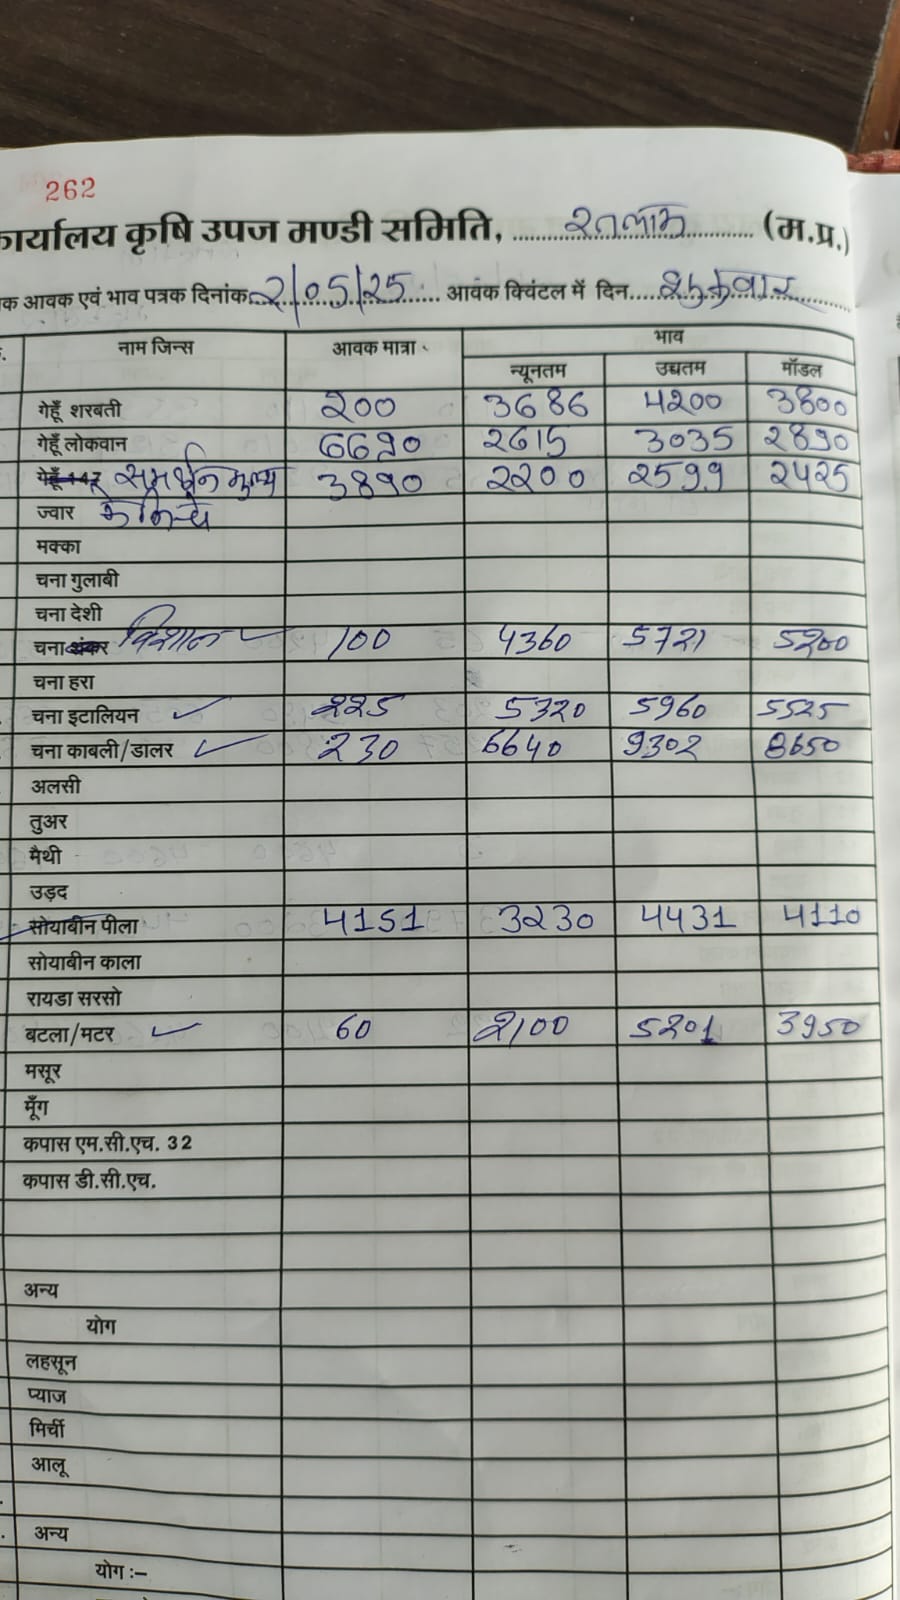 262
कार्यालय कृषि उपज मण्डी समिति, रतलाम (म.प्र.)
क आवक एवं भाव पत्रक दिनांक 2/05/25 आवक क्विंटल में दिन शुक्रवार
नाम जिन्स आवक मात्रा भाव
न्यूनतम उच्चतम मॉडल
गेहूँ शरबती 200 3686 4200 3800
गेहूँ लोकवान 6690 2615 3035 2890
गेहूँ 147 समर्थन मुल्य 3890 2200 2599 2425
ज्वार के नीचे
मक्का
चना गुलाबी
चना देशी
चना शंकर विशाल 100 4360 5721 5200
चना हरा
चना इटालियन 225 5320 5960 5525
चना काबली/डालर 230 6640 9302 8650
अलसी
तुअर
मैथी
उड़द
सोयाबीन पीला 4151 3230 4431 4110
सोयाबीन काला
रायडा सरसो
बटला/मटर 60 2100 5201 3950
मसूर
मूँग
कपास एम.सी.एच. 32
कपास डी.सी.एच.
अन्य
योग
लहसून
प्याज
मिर्ची
आलू
अन्य
योग :–